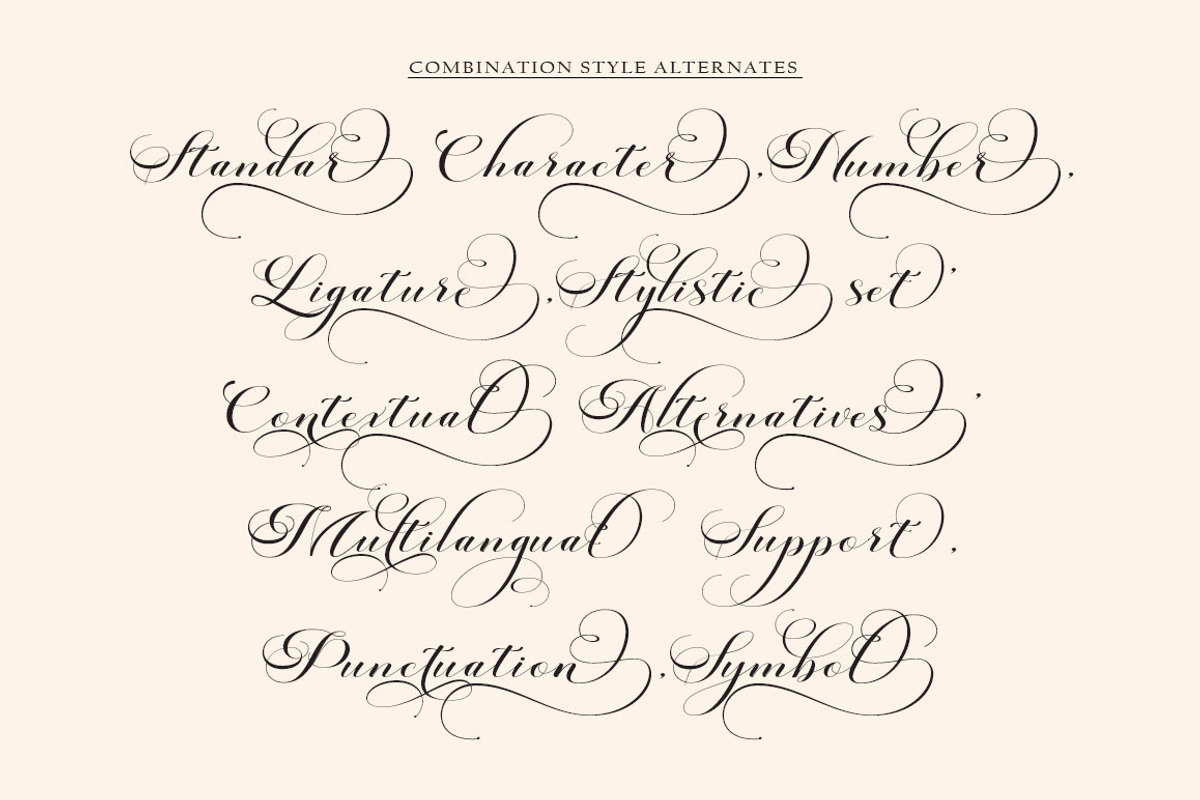 COMBINATION STYLE ALTERNATES
Standar Character, Number,
Ligature, Stylistic set,
Contextual Alternatives,
Multilangual Support,
Punctuation, Symbol